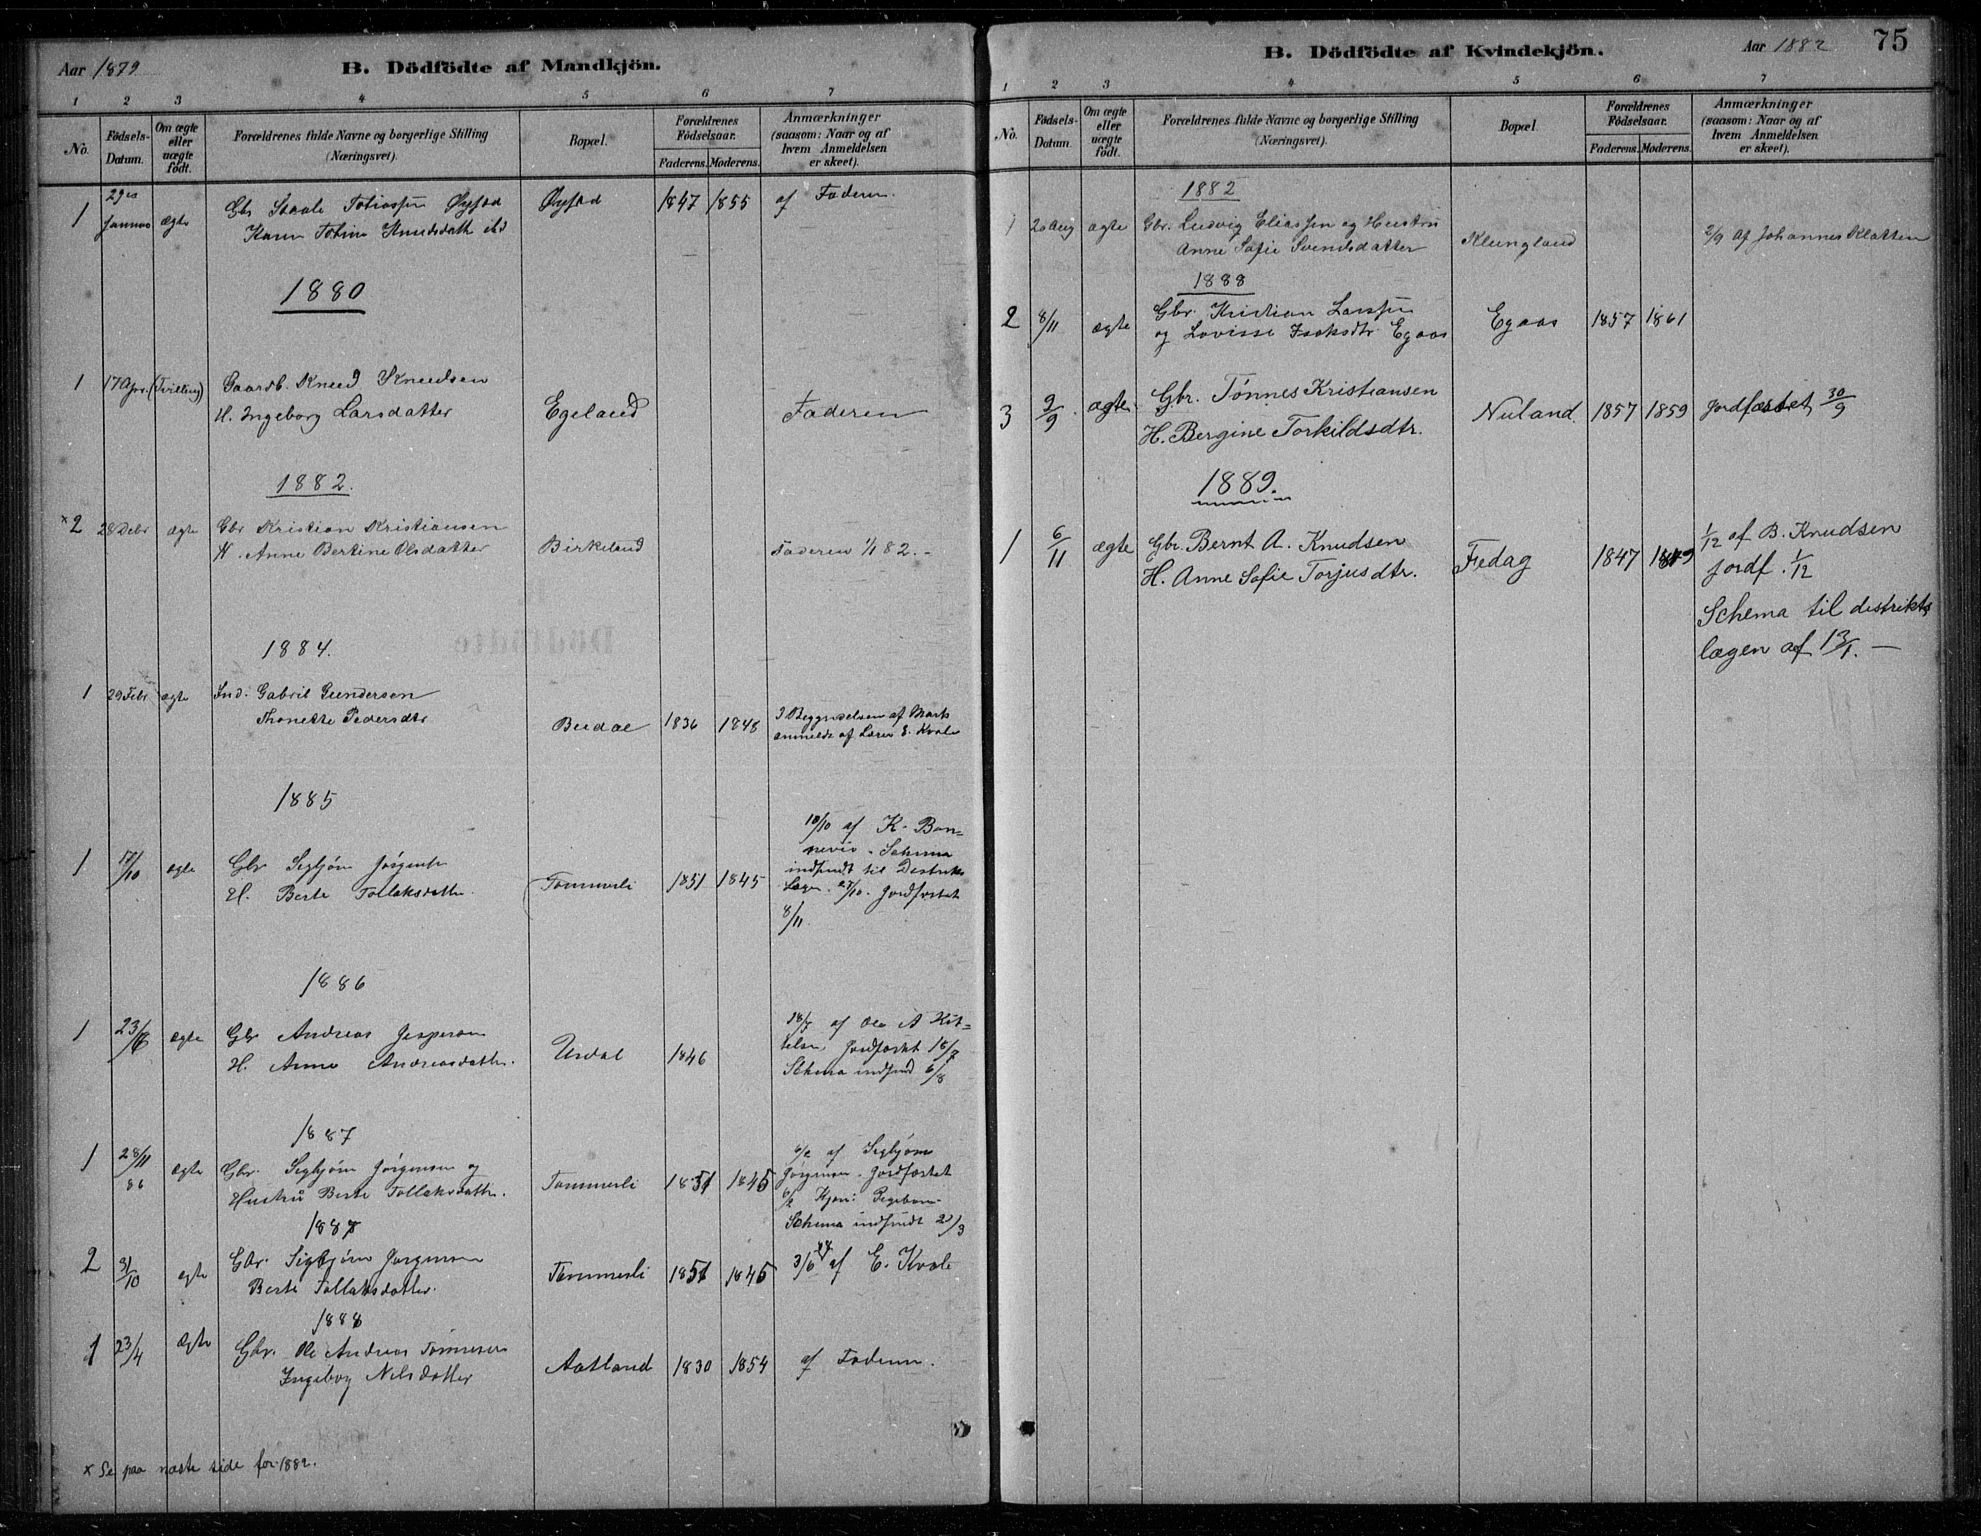 Aar 1879
B. Dödfödte af Mandkjön.
1 2 3 4 5 6 7
No. Födsels-Datum. Om ægte eller uægte født. Forældrenes fulde Navne og borgerlige Stilling (Næringsvei). Bopæl. Forældrenes Födselsaar. Faderens. Moderens. Anmærkninger (saasom: Naar og af hvem Anmeldelsen er skeet).
1 29de Januar ægte Gbr Staale Tobiassen Øysæd Øysæd 1847 1855 af Faderen.
Karen Tobine Knudsdatt ibd
1880
1 17 Apr. (Tvilling) Gaardb. Knud Knudsen
H. Ingeborg Larsdatter Egeland Faderen
1882.
x2 28 Debr ægte Gbr Kristian Kristiansen
H. Anne Bertine Olsdatter Birkeland Faderen 1/1 82. -
1884.
1 29 Febr ægte Ind. Gabriel Gundersen
Thonette Pedersdtr Berdal 1836 1848 I Begyndelsen af Marts
anmeldt af Lærer E. Kvale
1885
1 17/10 ægte Gbr Sigbjørn Jørgensen
H. Berte Tollaksdatter Tommerli 1851 1845
18/10 af K. Bon-
nevie. Schema
indsendt til Distrikts
Lægen 27/10. Jordfæstet
8/11
1886
1 23/6 ægte Gbr Andreas Jespersen
H. Anne Andreasdatter. Urdal 1846
18/7 af Ole A Kit-
telsen, Jordfæstet 18/7
Schema indsend 6/8
1887
1 28/11 86 ægte Gbr. Sigbjørn Jørgensen og
Hustru Berte Tollaksdatter. Tommerli 1851 1845
6/2 af Sigbjørn
Jørgensen. Jordfæstet
6/2
Schema indsendt 2/3
1887
2 31/10 ægte Gbr. Sigbjørn Jørgensen
Berte Tollaksdatter. Tommerli 1851 1845 3/6 88 af E. Kvale
1888
1 23/4 Ægte Gbr. Ole Andreas Tønnesen
Ingeborg Nilsdatter Aatland 1830 1854 af Faderen.
x Se paa næste side for 1882.
B. Dödfödte af Kvindekjön.
Aar 1882
75
1 2 3 4 5 6 7
No. Födsels-Datum. Om ægte eller uægte födt. Forældrenes fulde Navne og borgerlige Stilling (Næringsvei). Bopæl. Forældrenes Födselsaar. Faderens. Moderens. Anmærkninger (saasom: Naar og af hvem Anmeldelsen er skeet).
1882
1 20 Aug ægte Gbr. Ludvig Eliassen og Hustru
Anne Sofie Svendsdatter Klungland 2/9 af Johannes Klatten
1888
2 8/11 ægte Gbr. Kristian Larssen
og Lovisse Isaksdtr. Egaas Egaas 1857 1861
3 9/9 ægte Gbr. Tønnes Kristiansen
H. Bergine Torkildsdtr. Nuland. 1857 1859 Jordfæstet 30/9
1889.
1 6/11 ægte Gbr. Bernt A. Knudsen
H. Anne Sofie Torjusdtr. Fedog 1847
1/12 af B. Knudsen
Jordf. 1/12
Schema til distrikts
lægen af 13/1. —